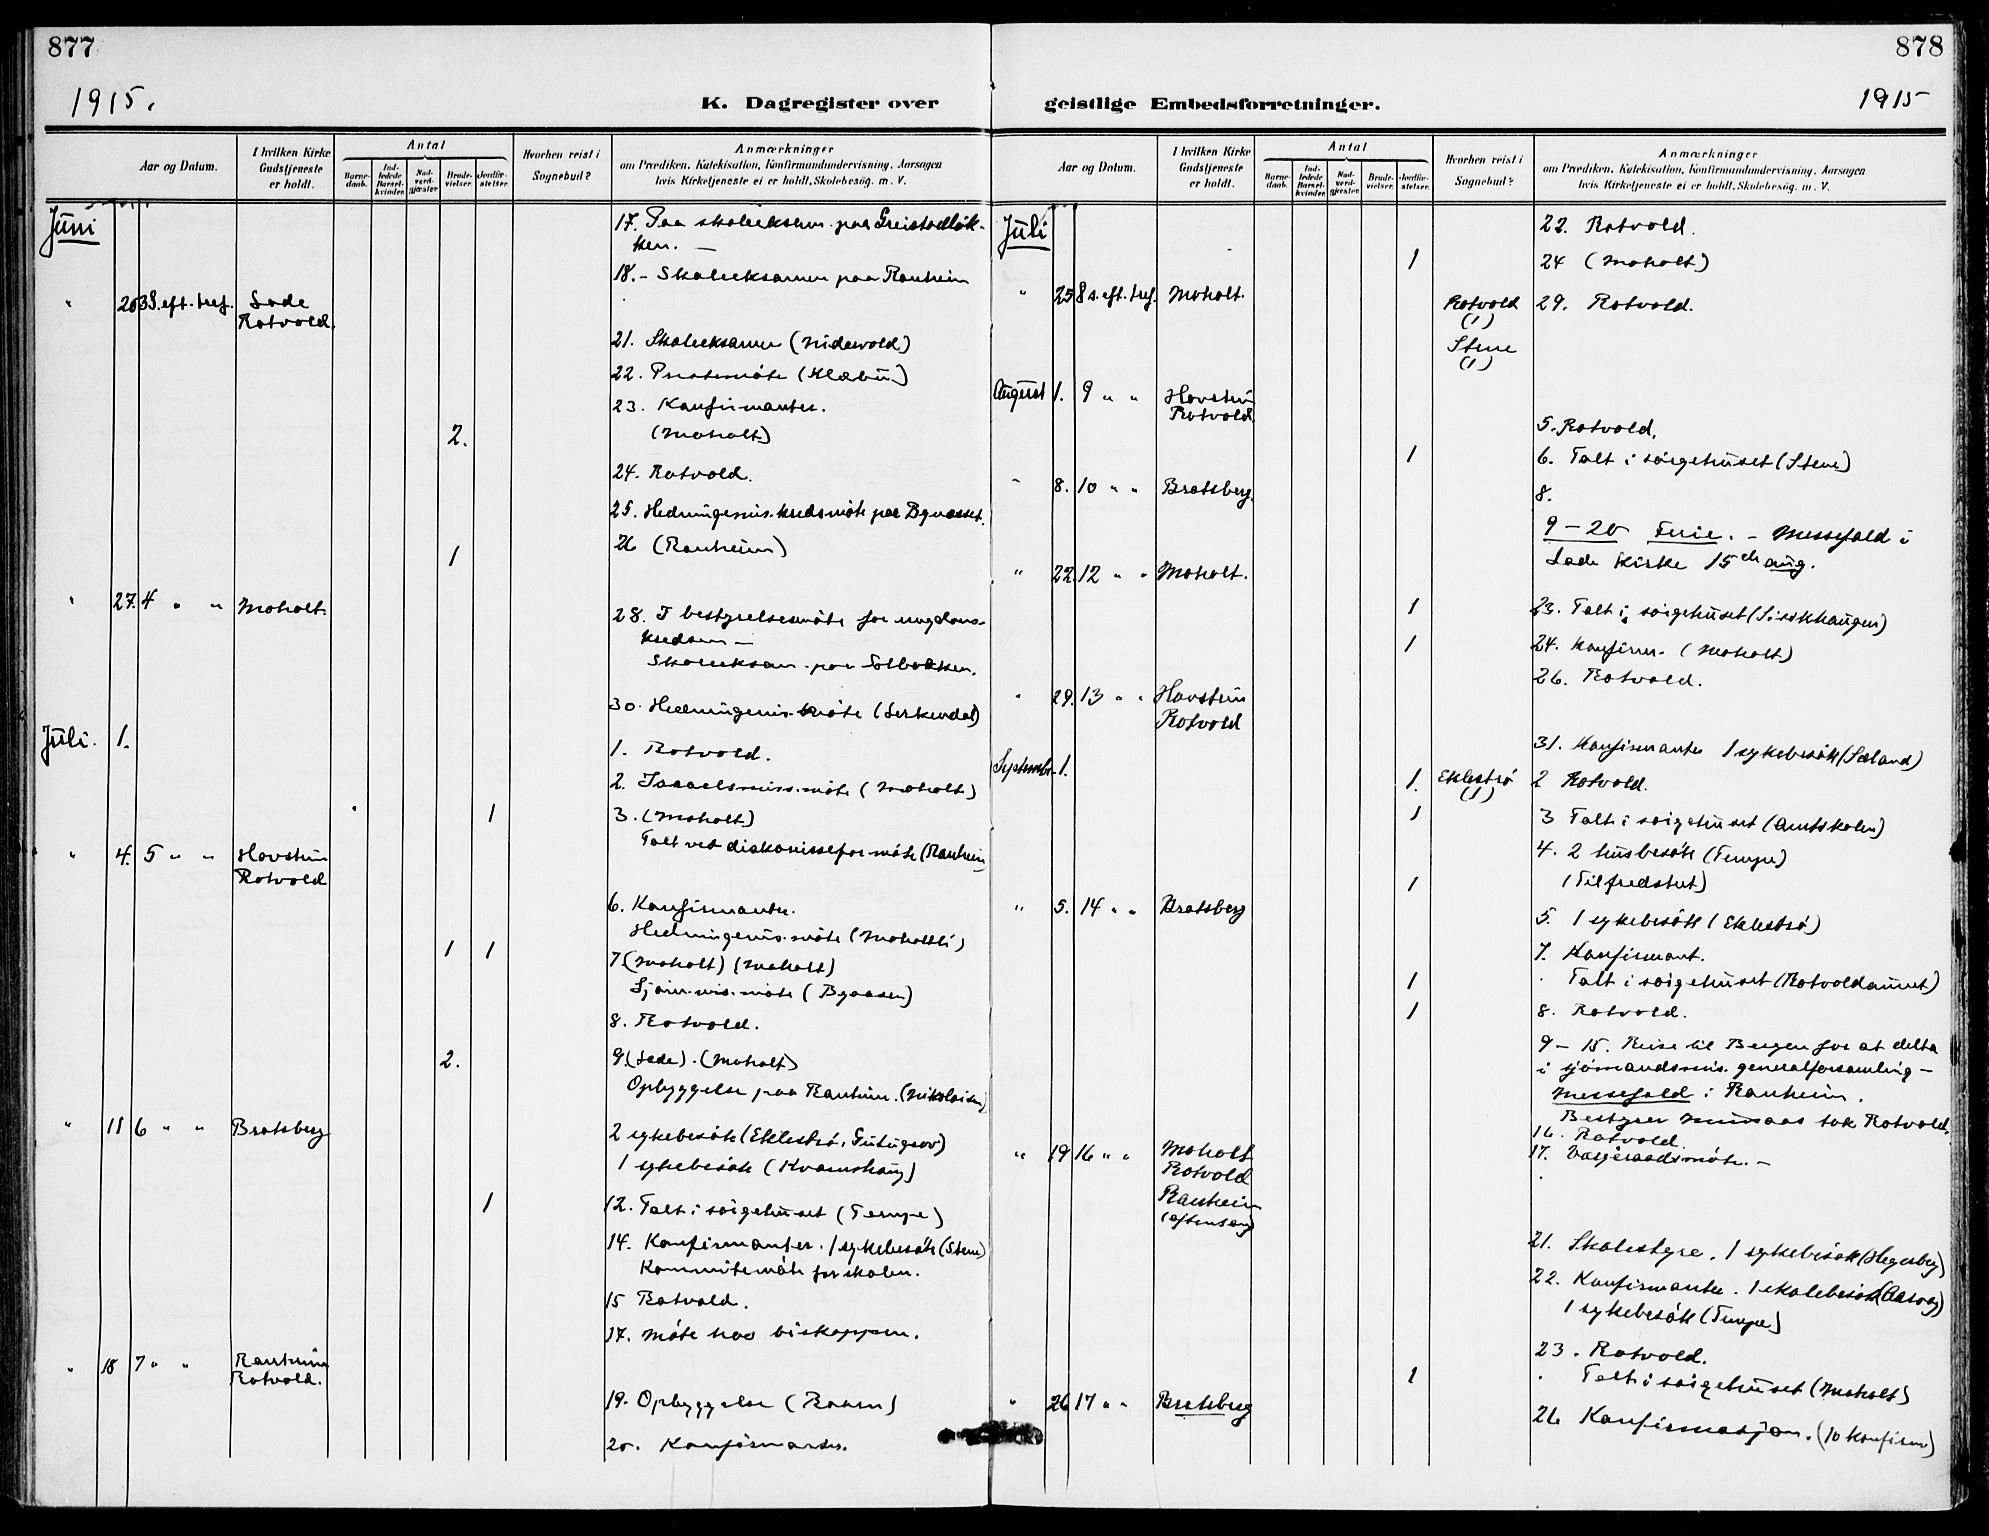 877
1915.
K. Dagregister over
Aar og Datum.
I hvilken Kirke Gudstjeneste er holdt.
Antal
Barnedaab.
Indledede Barselkvinder.
Nadverdgjæster.
Brudevielser.
Jordfæstelser.
Hvorhen reist i Sognebud?
Anmærkninger
om Prædiken, Katekisation, Konfirmandundervisning, Aarsagen
hvis Kirketjeneste ei er holdt, Skolebesøg. m. V.
Juni
17. Paa skoleeksam. paa Greistadløk-
ken. —
18. - Skoleeksamen paa Ranheim
" 20 3 S. eft. tref. Lade
Rotvold.
21. Skoleeksamen (Nidarvold)
22. Prestemöte (Klæbu)
23. Konfirmanter.
2. (Moholt)
24. Rotvold.
25. Hedningemis. kredsmöte paa Bynesset.
1 26 (Ranheim)
" 27. 4 " " Moholt.
28. I bestyrelsesmöte for ungdoms-
kredsen —
Skoleeksam. paa Solbakken.
30. Hedningemis. möte (Lerkendal)
Juli. 1.
1. Rotvold.
2. Israelsmiss. möte (Moholt)
1 3. (Moholt)
Talt ved diakonissefor. möte (Ranheim)
" 4. 5 " " Havstein
Rotvold
6. Konfirmanter.
Hedningemis. möte (Moholtli)
1 1 7. (Moholt) (Moholt)
Sjöm. mis. möte (Byaasen)
8. Rotvold.
2. 9. (Lade). (Moholt)
Opbyggelse paa Ranheim. (Nikolaisen)
" 11 6 " " Bratsberg
2 sykebesök (Ekleströ,
1 sykebesök (Kvamshaug)
1 12. Talt i sörgehuset (Tempe)
14. Konfirmanter. 1 sykebesök (Stene)
Kommitemöte for skolen.
15 Rotvold.
17. Möte hos biskoppen.
" 18 7 " " Ranheim
Rotvold.
19. Opbyggelse (Ranem)
20. Konfirmanter.
878
1915
geistlige Embedsforretninger.
Aar og Datum.
I hvilken Kirke Gudstjeneste er holdt.
Antal
Barnedaab.
Indledede Barselkvinder.
Nadverdgjæster.
Brudevielser.
Jordfæstelser.
Hvorhen reist i Sognebud?
Anmærkninger
om Prædiken, Katekisation, Konfirmandundervisning, Aarsagen
hvis Kirketjeneste ei er holdt, Skolebesøg. m. V.
Juli
22. Rotvold.
1 24 (Moholt)
" 25 8 s. eft. tref. Moholt. Rotvold 29. Rotvold.
(1)
Stene
(1)
August 1. 9 " " Havstein
Rotvold.
5. Rotvold.
1 6. Talt i sörgehuset (Stene)
" 8. 10 " " Bratsberg. 8.
9 – 20 Ferie. – Messefald i
Lade Kirke 15de aug.
" 22. 12 " " Moholt.
1 23. Talt i sörgehuset (Sisikhaugen)
1 24. Konfirm. (Moholt)
26. Rotvold.
" 29. 13 " " Havstein
Rotvold
31. Konfirmanter 1 sykebesök (Sæland)
Septembr. 1.
1. Ekleströ 2 Rotvold.
(1)
1 3 Talt i sörgehuset (Amtskolen)
4. 2 husbesök (Tempe)
1 (Tilfredshet)
" 5. 14 " " Bratsberg
5. 1 sykebesök (Ekleströ)
7. Konfirmant.
1 Talt i sörgehuset (Rotvoldaunet)
1 8. Rotvold.
9 – 15. Reise til Bergen for at delta
i sjömandsmis. generalforsamling –
Messefald i Ranheim.
Bestyrer tok Rotvold.
16. Rotvold.
" 19 16 " " Moholt
17. Vergeraadsmöte. –
Rotvold
Ranheim
(aftensang)
21. Skolestyre. 1 sykebesök (Hegerberg)
22. Konfirmanter. 1 skolebesök
1 sykebesök (Tempe)
23. Rotvold.
1 Talt i sörgehuset (Moholt)
" 26 17 " " Bratsberg
26 Konfirmasjon. (10 konfirm)